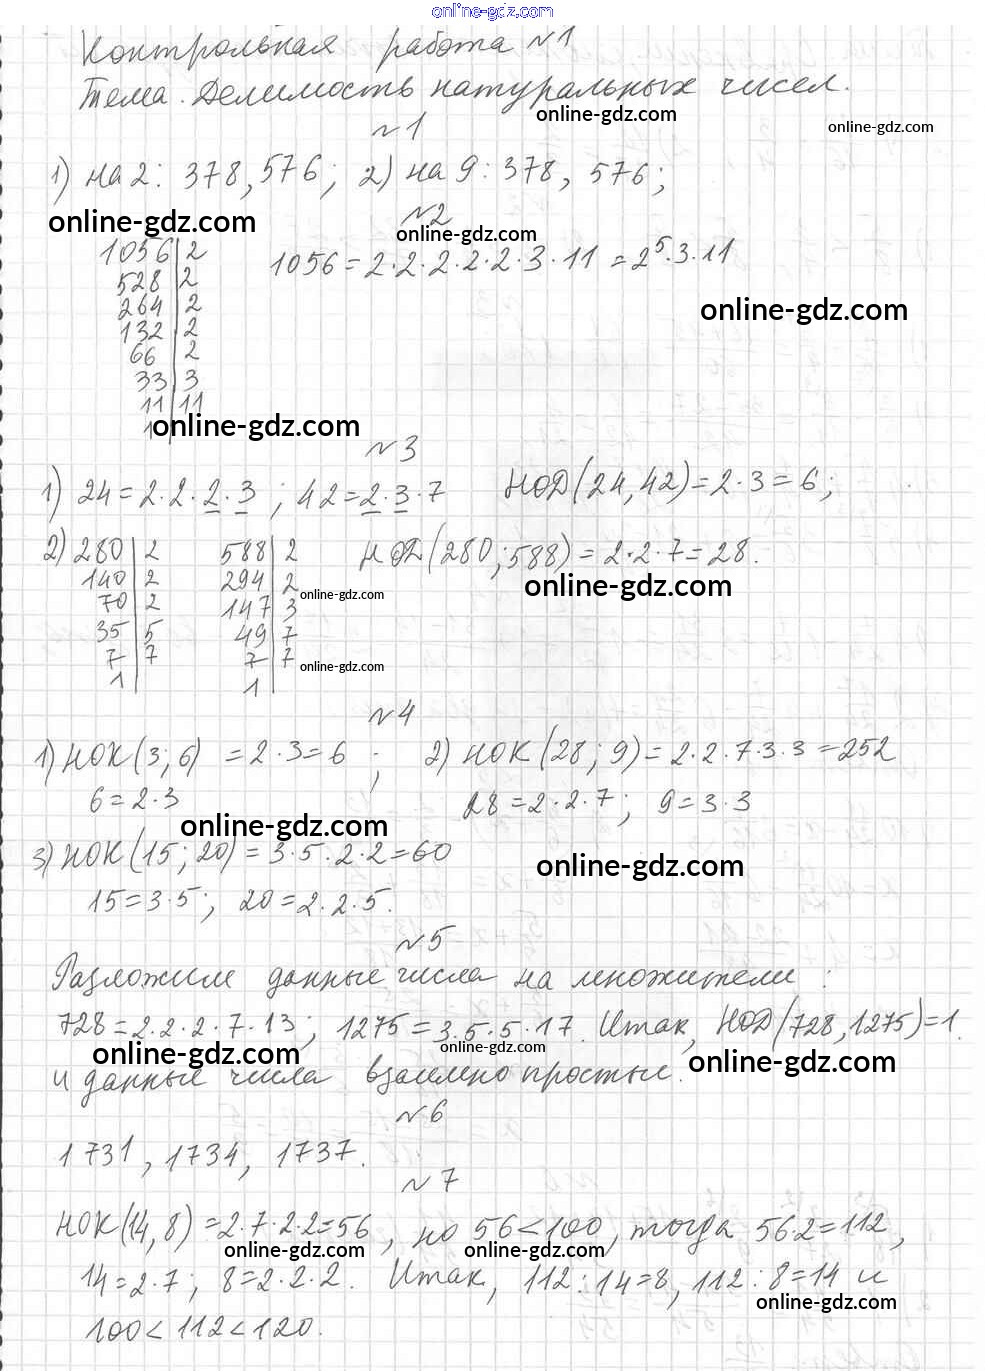 online-gdz.com
Контрольная работа №1
Тема. Делимость натуральных чисел.
online-gdz.com
online-gdz.com
№1
1) на 2: 378, 576; 2) на 9: 378, 576;
online-gdz.com
№2
online-gdz.com
1056 | 2
1056 = 2·2·2·2·2·3·11 = 2⁵·3·11
528 | 2
264 | 2
online-gdz.com
132 | 2
66 | 2
33 | 3
11 | 11
1
online-gdz.com
№3
1) 24 = 2·2·2·3; 42 = 2·3·7 НОД(24,42) = 2·3 = 6;
2) 280 | 2 588 | 2 НОД(280;588) = 2·2·7 = 28.
140 | 2 294 | 2
online-gdz.com
online-gdz.com
70 | 2 147 | 3
35 | 5 49 | 7
7 | 7 7 | 7
online-gdz.com
1 1
№4
1) НОК(3;6) = 2·3 = 6; 2) НОК(28;9) = 2·2·7·3·3 = 252
6 = 2·3 28 = 2·2·7; 9 = 3·3
online-gdz.com
3) НОК(15;20) = 3·5·2·2 = 60
online-gdz.com
15 = 3·5; 20 = 2·2·5.
№5
Разложим данные числа на множители:
728 = 2·2·2·7·13; 1275 = 3·5·5·17. Итак, НОД(728,1275) = 1.
online-gdz.com
online-gdz.com
online-gdz.com
и данные числа взаимно простые.
№6
1731, 1734, 1737.
№7
НОК(14,8) = 2·7·2·2 = 56, но 56 < 100, тогда 56·2 = 112,
online-gdz.com
online-gdz.com
14 = 2·7; 8 = 2·2·2. Итак, 112:14 = 8, 112:8 = 14 и
online-gdz.com
100 < 112 < 120.